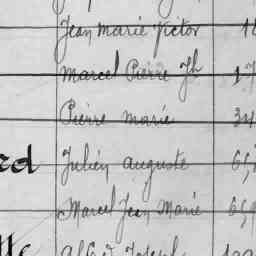 Jean Marie Victor 1
Marcel Pierre Jh 17
Pierre Marie 34
rd Julien Auguste 65
Marcel Jean Marie 65
Alfred Joseph